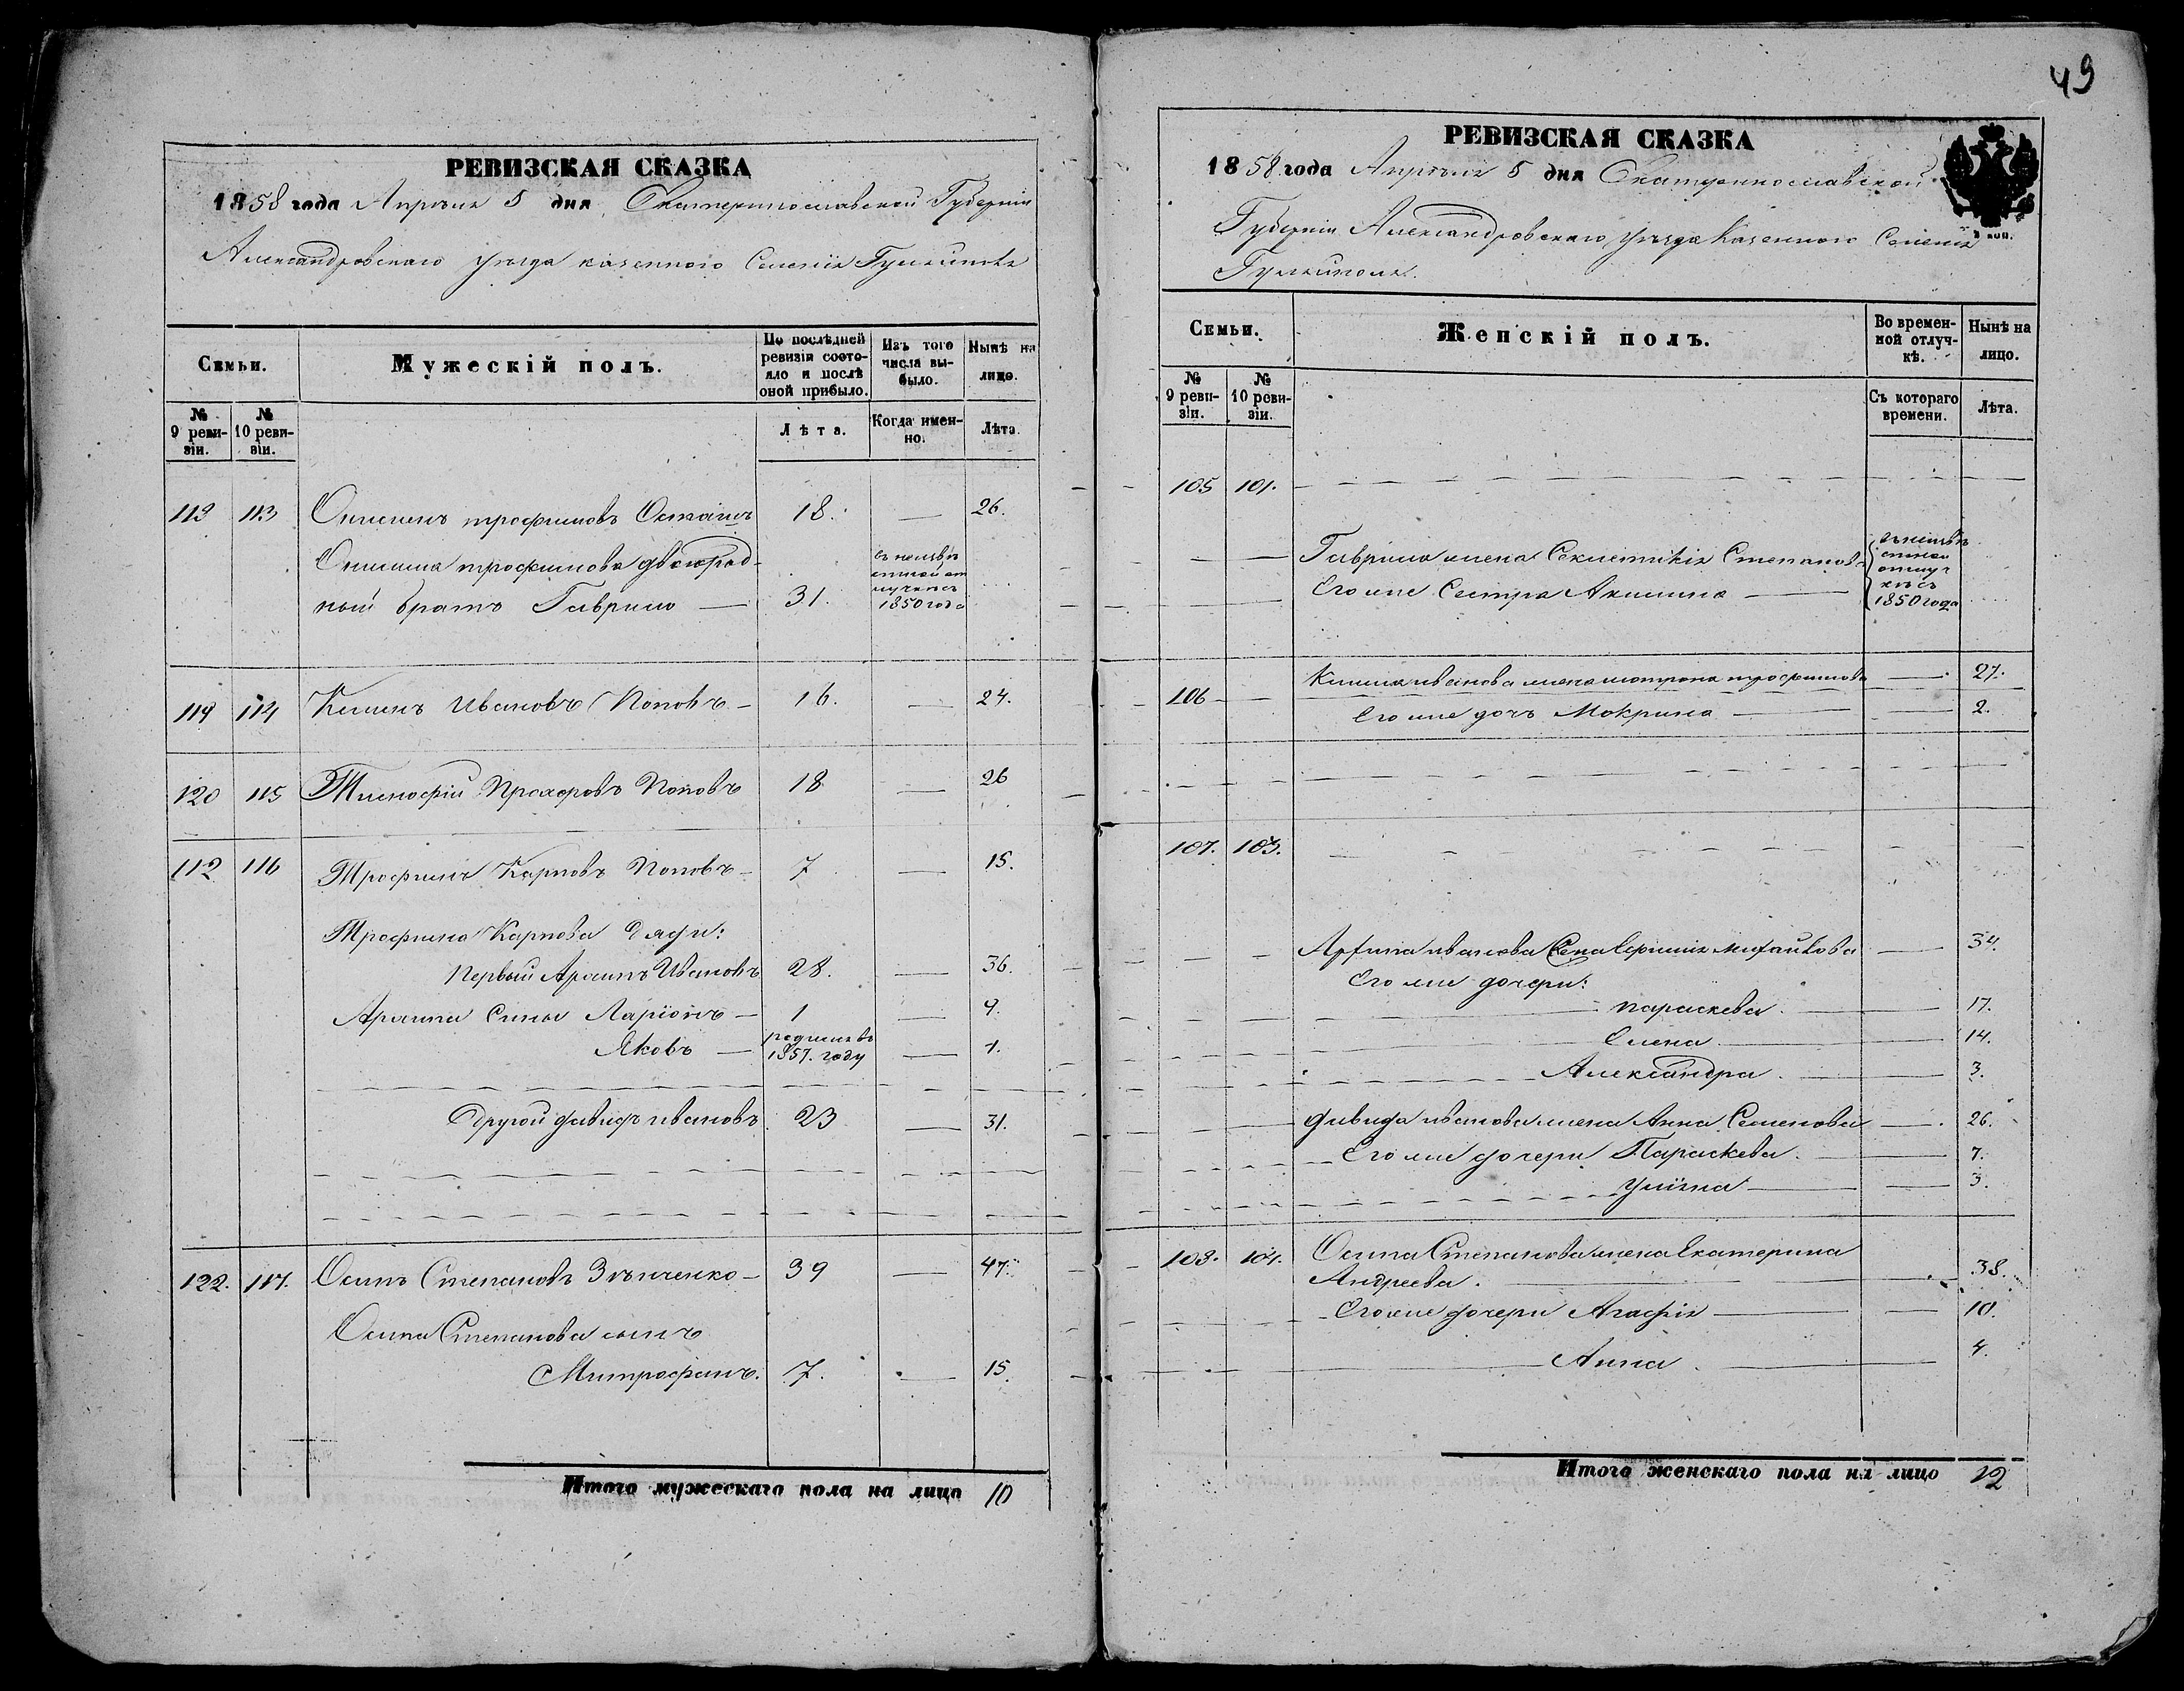 РЕВИЗСКАЯ СКАЗКА
1858 года Апрѣля 5 дня Екатеринославской Губерніи
Александровскаго уѣзда казеннаго Селенія Гуляйполя
Семьи.
Мужескій полъ.
По послѣдней ревизіи состояло и послѣ оной прибыло.
Изъ того числа выбыло.
Нынѣ на лицо.
№ 9 ревизіи.
№ 10 ревизіи.
Лѣта.
Когда именно.
Лѣта.
113 113 трофимовъ 18. — 26.
трофимова двоюрод-
ный братъ Гаврило — 31. въ неизвѣстной отлучкѣ съ 1850 года
119 114 Климъ Ивановъ Поповъ — 16. — 24.
120 115 Тимофій Прохоровъ Поповъ 18 — 26
112 116 Трофимъ Карповъ Поповъ — 7 — 15.
Трофима Карпова дяди:
первый Архипъ Ивановъ 28. — 36.
Архипа Сыны Ларіонъ — 1 — 9.
Яковъ — родился въ 1857. году — 1.
Другой давидъ ивановъ 23 — 31.
122. 117. Осипъ Степановъ Зѣнченко — 39 — 47.
Осипа Степанова сынъ
Митрофанъ. 7. — 15
Итого мужескаго пола на лицо 10
49
РЕВИЗСКАЯ СКАЗКА
1858 года Апрѣля 5 дня Екатеринославской
Губерніи Александровскаго уѣзда Казеннаго Селенія
Гуляйполя.
коп.
Семьи.
Женскій полъ.
Во временной отлучкѣ.
Нынѣ на лицо.
№ 9 ревизіи.
№ 10 ревизіи.
Съ котораго времени.
Лѣта.
105 101.
Гаврила жена Секлетикія Степанова
Его же Сестра Акилина — въ неизвѣстной отлучкѣ съ 1850 года
106 — Клима иванова жена мотрона трофимова — 27.
Его же дочь Мокрина — 2.
107. 103.
Архипа иванова жена Ефимія михайлова — 34.
Его же дочери:
параскева. — 17.
Елена — 14.
Александра. — 3.
давида иванова жена Анна Семенова — 26.
Его же дочери Параскева. — 7.
Уліяна — 3.
108. 104. Осипа Степанова жена Екатерина
Андреева. — 38.
Его же дочери Агафія — 10.
Анна. — 4.
Итого женскаго пола на лицо 12